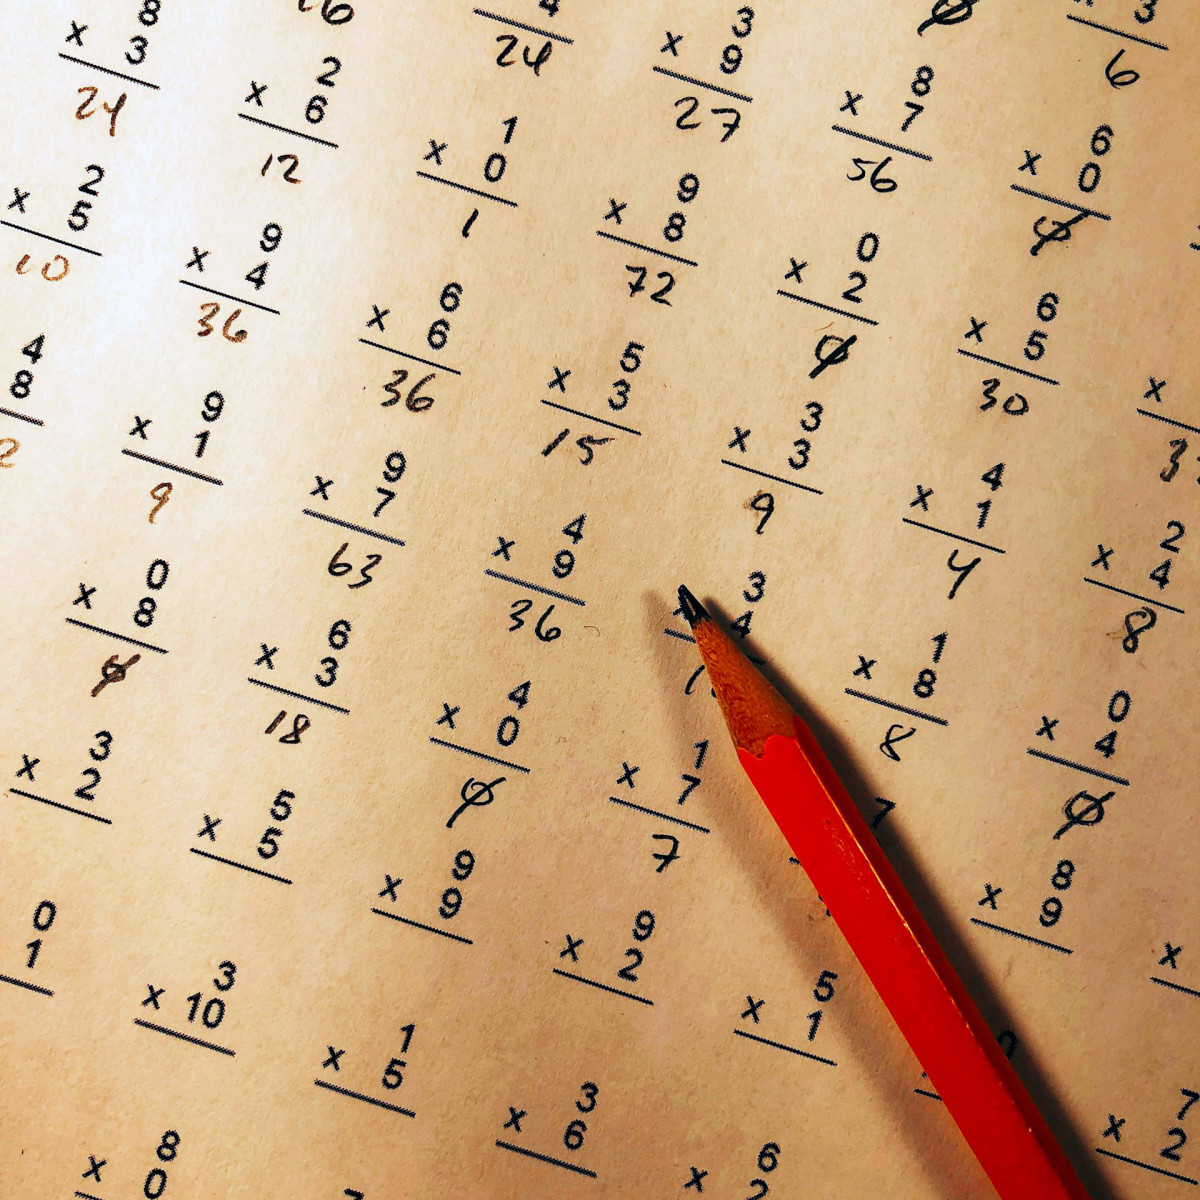 3
6
4
24
3 8 6
x 9 x 7 x 0
27 56 0
8 2 1 9 0 6
x 3 x 6 x 0 x 8 x 2 x 5 x
24 12 1 72 0 30
2 9 6 5 3 4 2
x 5 x 4 x 6 x 3 x 3 x 1 x 4
10 36 36 15 9 4 8
4 9 9 4 3 1 0
8 x 1 x 7 x 9 4 x 8 x 4
2 9 63 36 8 0
0 6 4 1 7 8
x 8 x 3 x 0 x 7 x 9 x
0 18 0 7
3 5 9 9 5 7
x 2 x 5 x 9 x 2 x 1 x 2
0 3 1 3 6
1 x 10 x 5 x 6 x 2
8
x 0